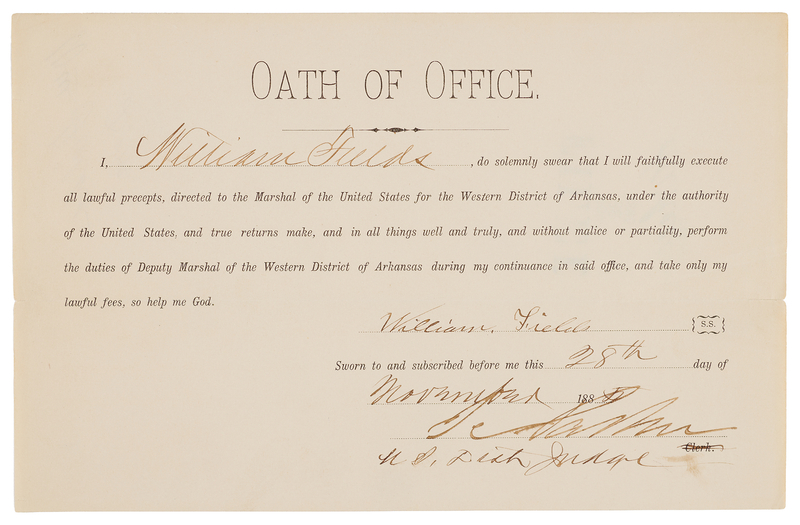 OATH OF OFFICE.
I, William Fields, do solemnly swear that I will faithfully execute
all lawful precepts, directed to the Marshal of the United States for the Western District of Arkansas, under the authority
of the United States, and true returns make, and in all things well and truly, and without malice or partiality, perform
the duties of Deputy Marshal of the Western District of Arkansas during my continuance in said office, and take only my
lawful fees, so help me God.
William. Fields {S.S.}
Sworn to and subscribed before me this 28th day of
November 188
Parker
Clerk.
U S. Dist Judge